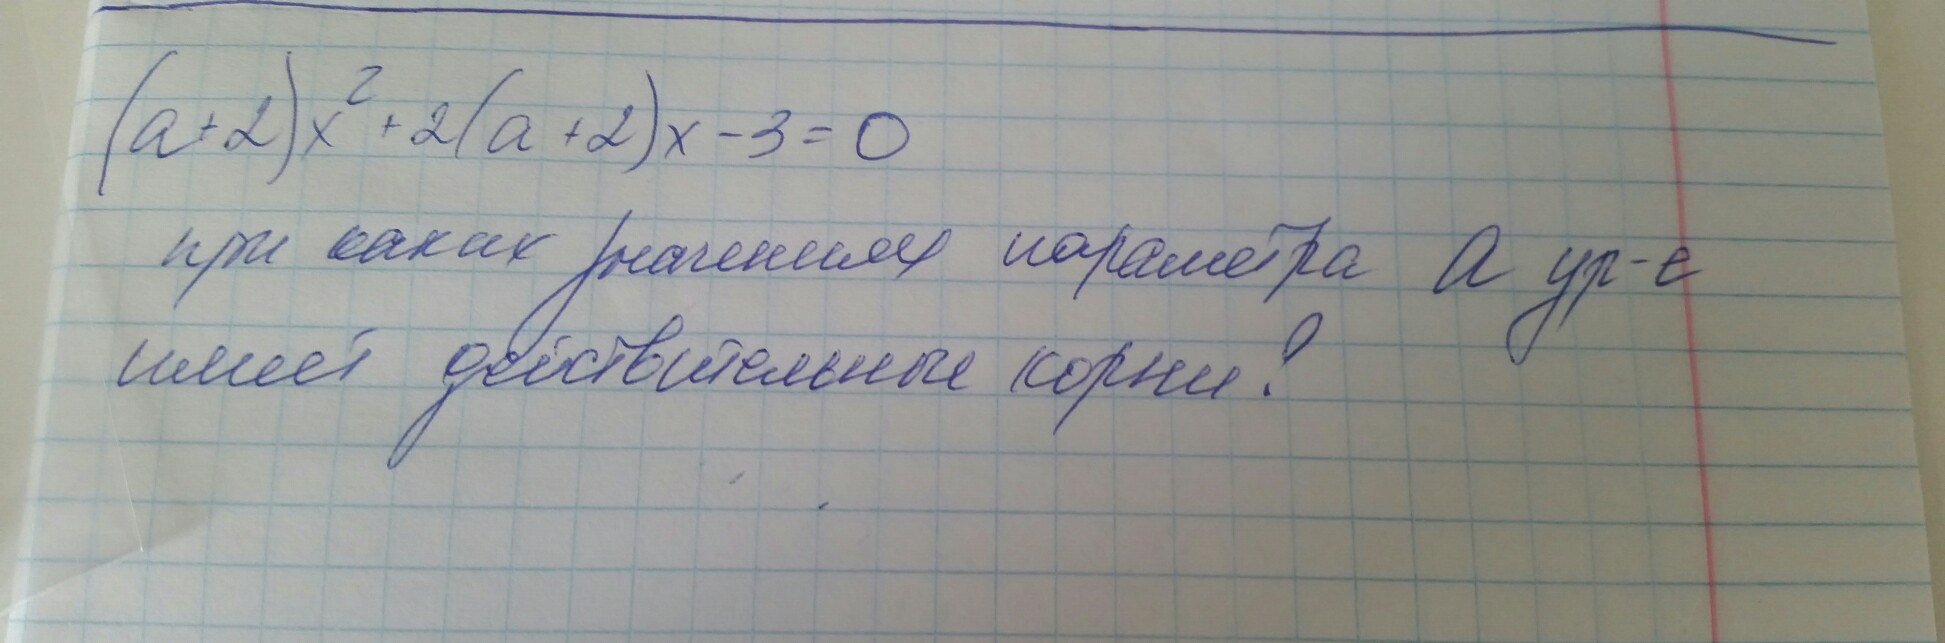 (a+2)x²+2(a+2)x-3=0
при каких значениях параметра a ур-е
имеет действительные корни?